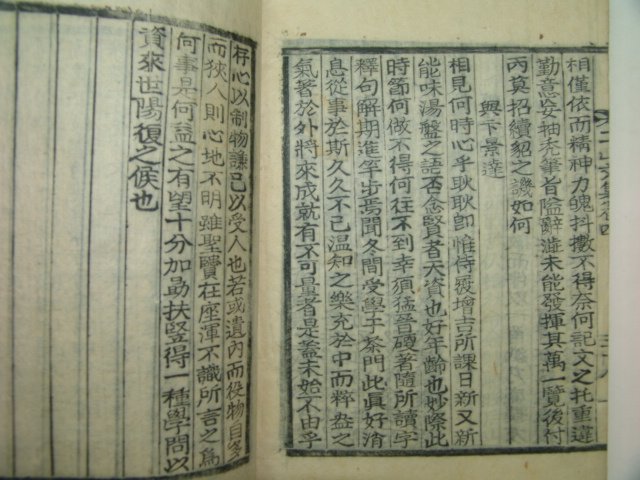 相僅依而精神力魄抖擻不得奈何記文之托重違
勤意妄抽禿筆旨隘辭澁未能發揮其萬一覽後付
丙莫招續貂之譏如何
與卞景達
相見何時心乎耿耿卽惟侍履增吉所課日新又新
能味湯盤之語否念賢者天資也好年齡也妙際此
時節何做不得何往不到幸須猛晉硬著隨所讀字
釋句解期進竿步焉聞冬間受學于溪門此眞好消
息從事於斯久久不已溫知之樂充於中而粹盎之
氣著於外將來成就有不可量者是盖未始不由乎
存心以制物謙己以受人也若或遺內而役物自多
而狹人則心地不明雖聖賢在座渾不識所言之爲
何事是何益之有望十分加勗扶竪得一種學問以
資來世陽復之候也